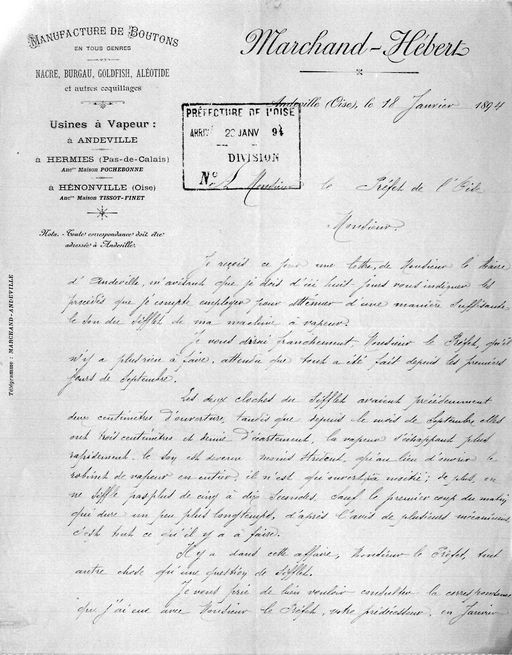 MANUFACTURE DE BOUTONS
EN TOUS GENRES
NACRE, BURGAU, GOLDFISH, ALÉOTIDE
et autres coquillages
Usines à Vapeur :
à ANDEVILLE
à HERMIES (Pas-de-Calais)
Anc.ne Maison POCHEBONNE
à HÉNONVILLE (Oise)
Anc.ne Maison TISSOT-FINET
Nota. Toute correspondance doit être
adressée à Andeville.
Télégramme : MARCHAND-ANDEVILLE
Marchand-Hébert
Andeville (Oise), le 18 Janvier 1894
PRÉFECTURE DE L'OISE
ARRIVÉ 20 JANV 94
DIVISION
N°
Monsieur le Préfet de l'Oise
Monsieur,
Je reçois ce jour une lettre, de Monsieur le Maire
d'Andeville, m'avisant que je dois d'ici huit jours vous indiquer les
procédés que je compte employer pour atténuer d'une manière suffisante
le son du sifflet de ma machine à vapeur.
Je vous dirai franchement, Monsieur le Préfet, qu'il
n'y a plus rien à faire, attendu que tout a été fait depuis les premiers
jours de Septembre.
Les deux cloches du sifflet avaient précédemment
deux centimètres d'ouverture, tandis que depuis le mois de Septembre elles
ont trois centimètres et demie d'écartement, la vapeur s'échappant plus
rapidement. le son est devenu moins strident, qu'au lieu d'ouvrir le
robinet de vapeur en entier, il n'est qu'ouvert à moitié ; de plus, on
ne siffle pas plus de cinq à dix secondes. sauf le premier coup du matin,
qui dure un peu plus longtemps, d'après l'avis de plusieurs mécaniciens,
c'est tout ce qu'il y a à faire.
Il y a dans cette affaire, Monsieur le Préfet, tout
autre chose qu'une question de sifflet.
Je vous prie de bien vouloir consulter la correspondance
que j'ai eue avec Monsieur le Préfet, votre prédécesseur, en Janvier